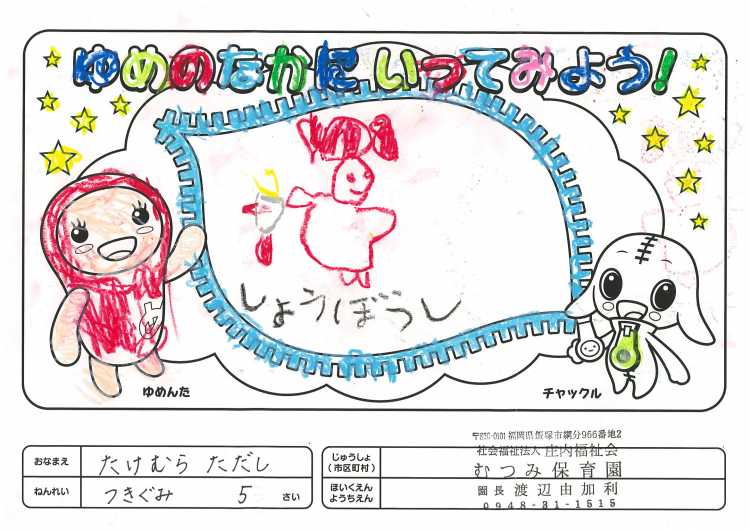 ゆめのなかにいってみよう!
しょうぼうし
ゆめんた
チャックル
おなまえ たけむら ただし
ねんれい つきぐみ 5 さい
じゅうしょ
(市区町村)
ほいくえん
ようちえん
〒820-0101 福岡県飯塚市綱分966番地2
社会福祉法人 庄内福祉会
むつみ保育園
園長 渡辺由加利
0948-31-1515